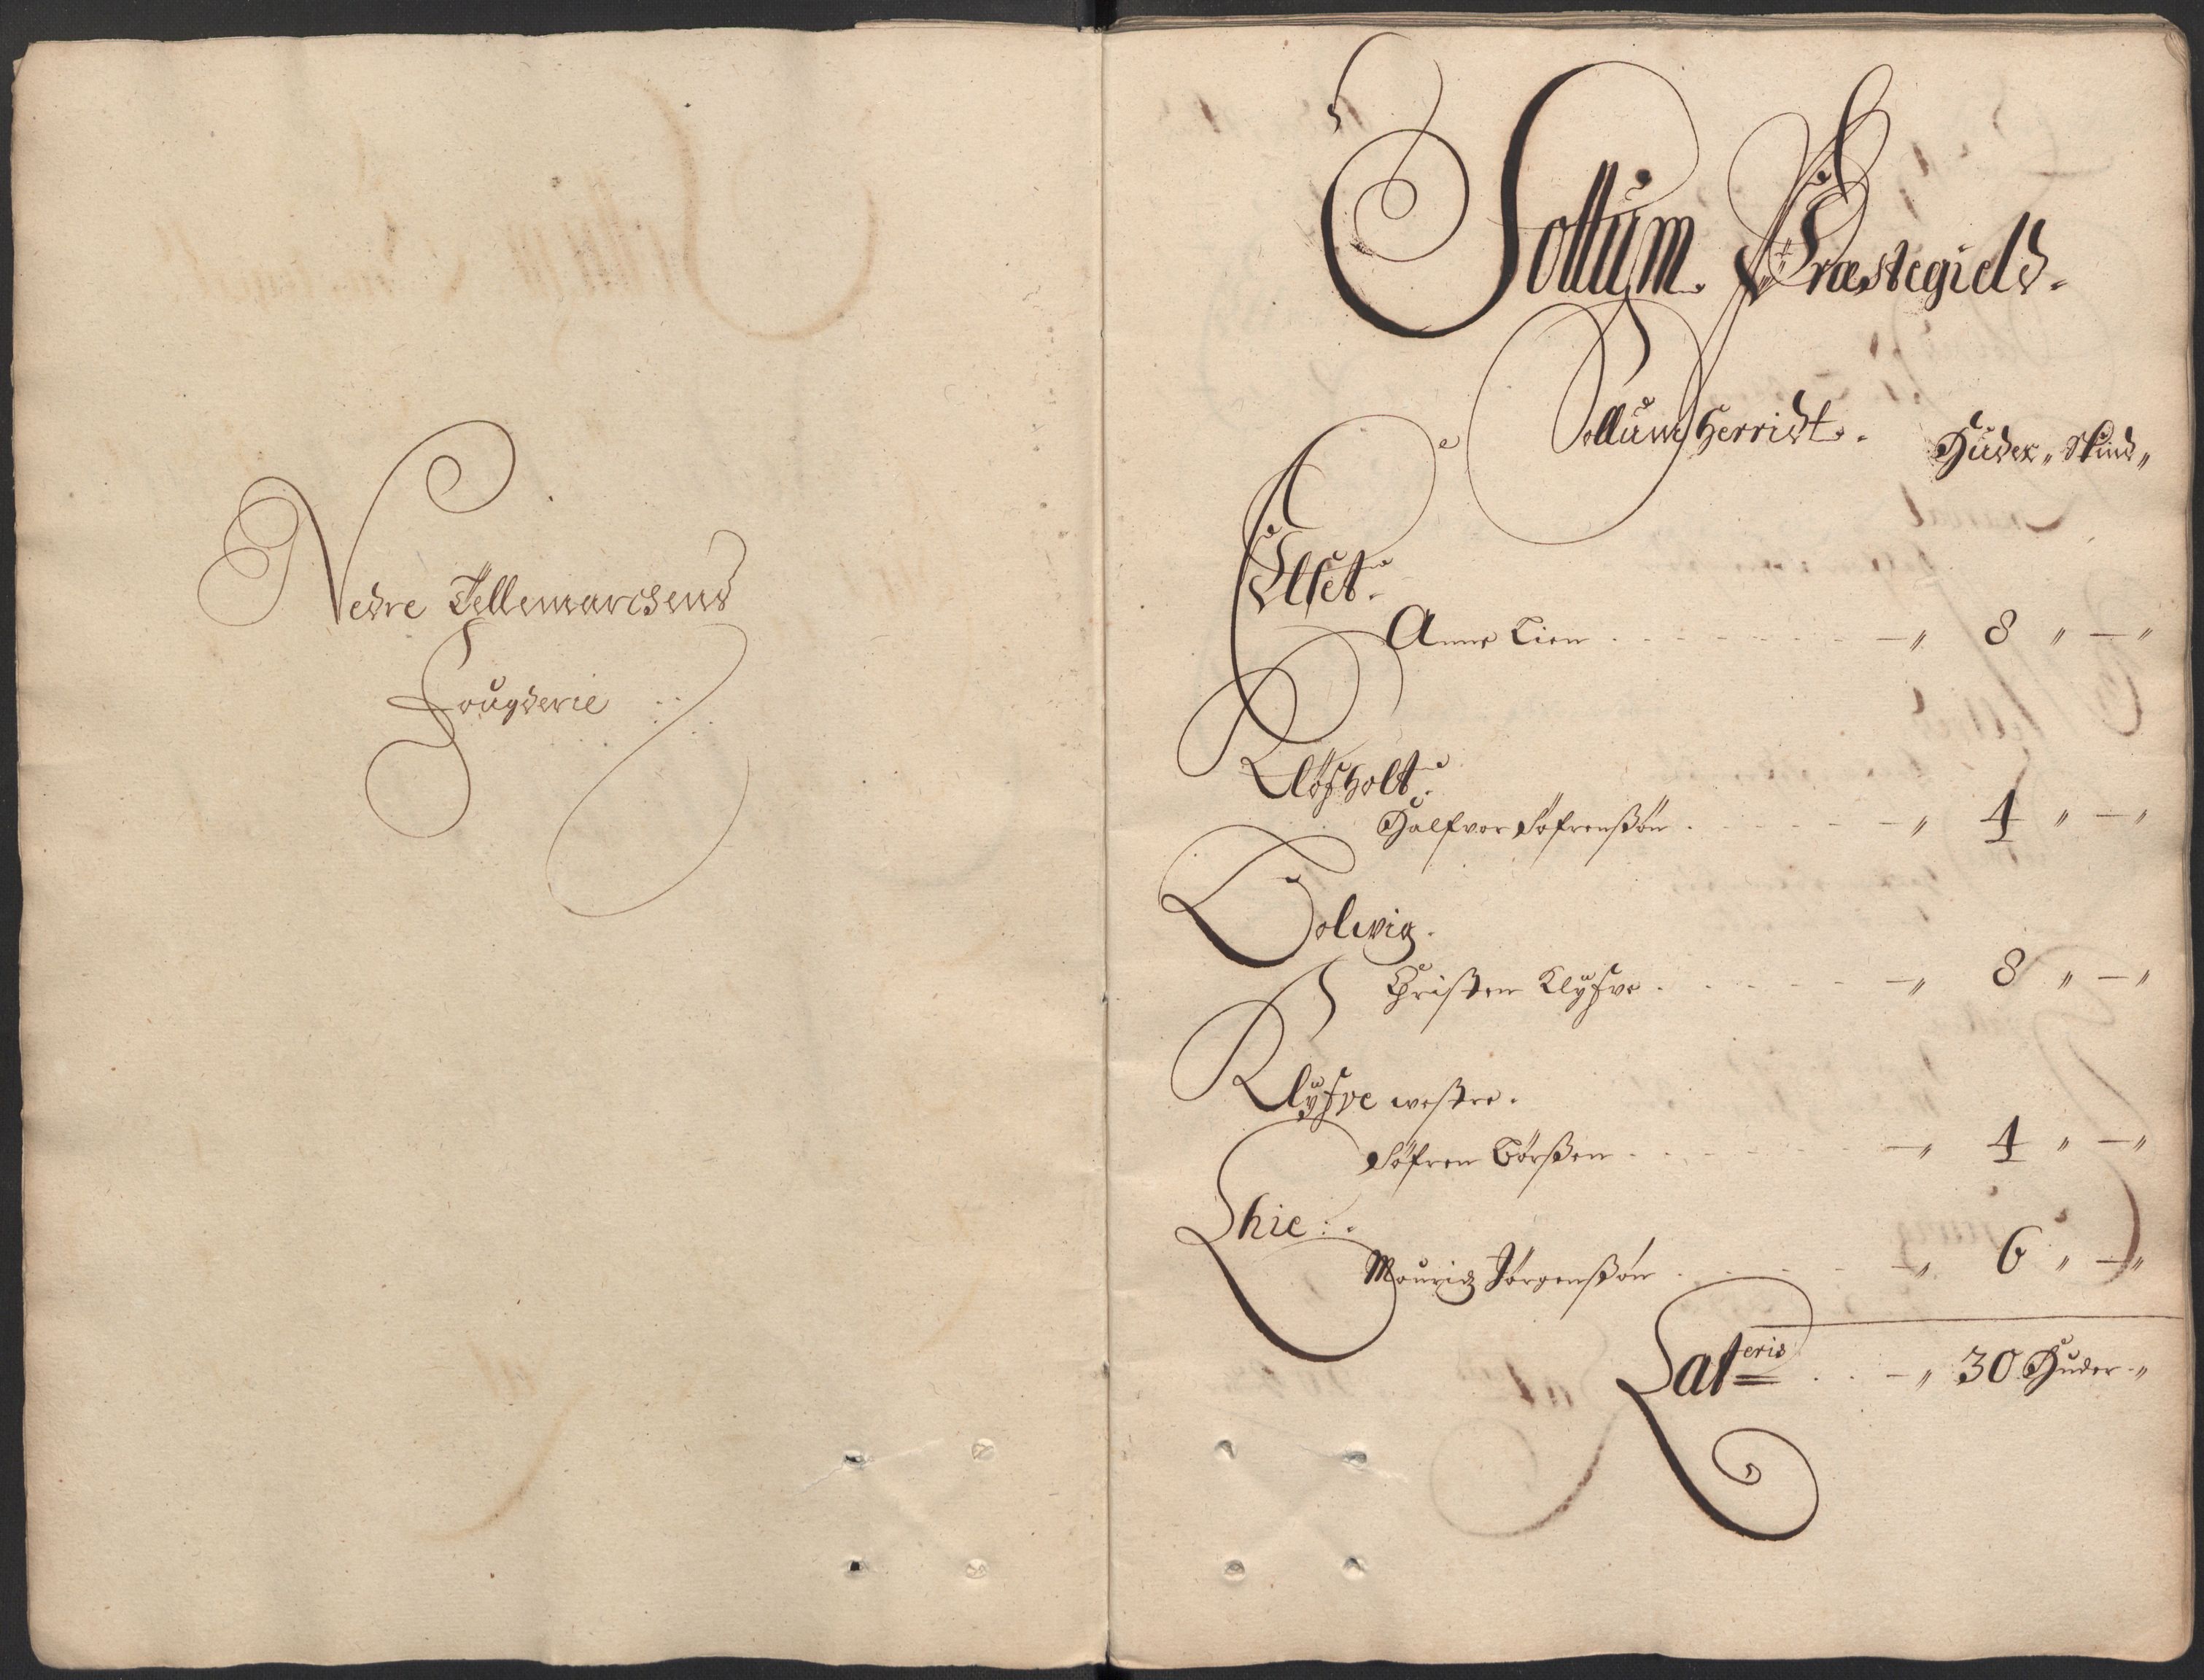 Nedre Tellemarchens
Fougderie
Sollum Præstegield.
Sollum Herridt. Huder, skind,
Elset.
Anne Lien - 8 -
Kløfholt.
Halfvor Søfrenßøn - 4 -
Solwig.
Christen Klyfve - 8 -
Klyfve westre.
Søfren Børßen - 4 -
Shie.
Mouriz Jørgenßøn - 6 -
Lateris - 30 Huder -